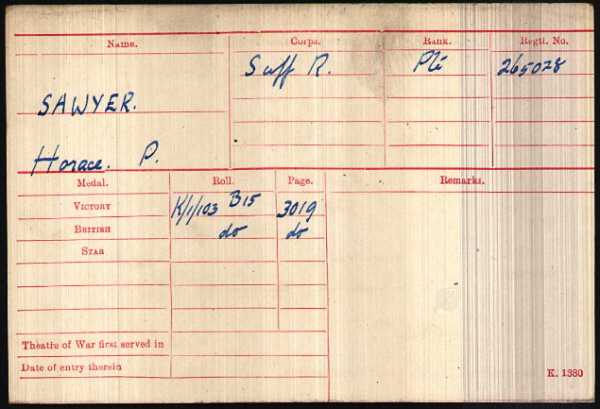 Name. Corps. Rank. Regtl. No.
Suff R. Pte 265028
SAWYER.
Horace. P.
Medal. Roll. Page. Remarks.
VICTORY K/1/103 B15 3019
BRITISH do do
STAR
Theatre of War first served in
Date of entry therein
K. 1380